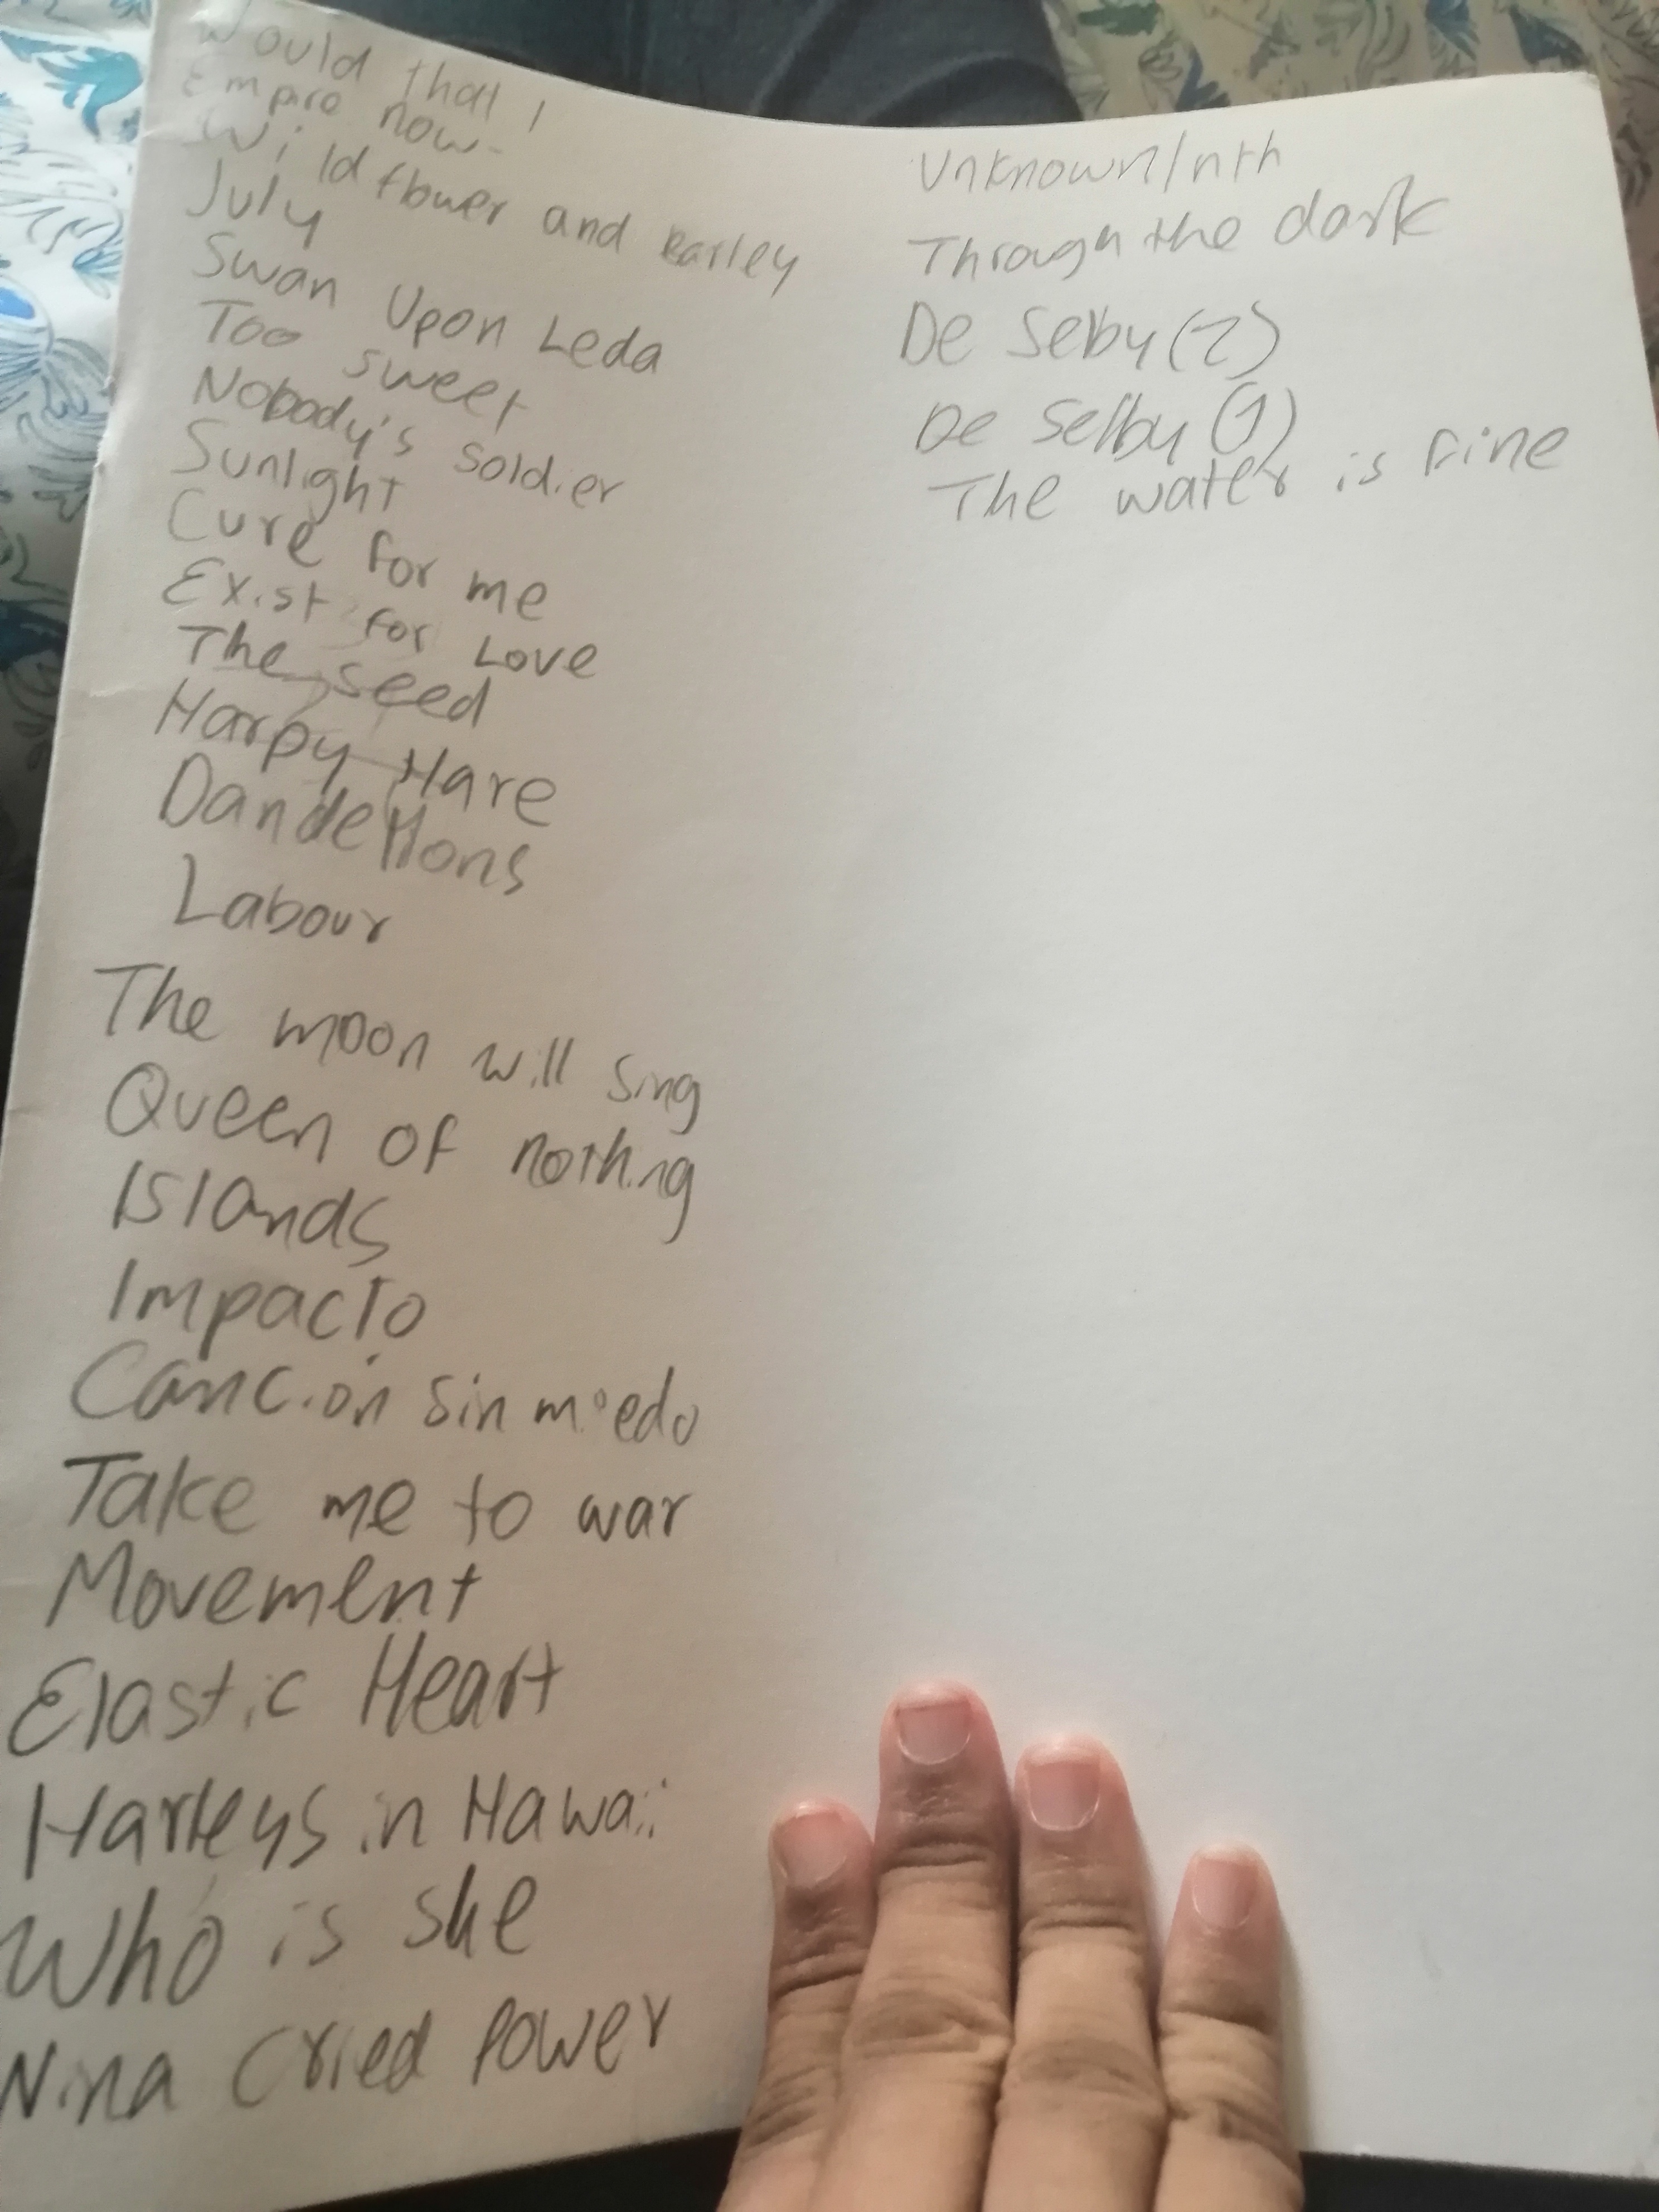 Would that I
Empire now
Wildflower and Barley
July
Swan Upon Leda
Too sweet
Nobody's soldier
Sunlight
Cure for me
Exist for Love
The seed
Harpy Hare
Dandelions
Labour
The moon will sing
Queen of nothing
Islands
Impacto
Canción sin miedo
Take me to war
Movement
Elastic Heart
Harleys in Hawaii
Who is she
Nina Cried Power
Unknown/nth
Through the dark
De Selby (2)
De Selby (1)
The water is fine